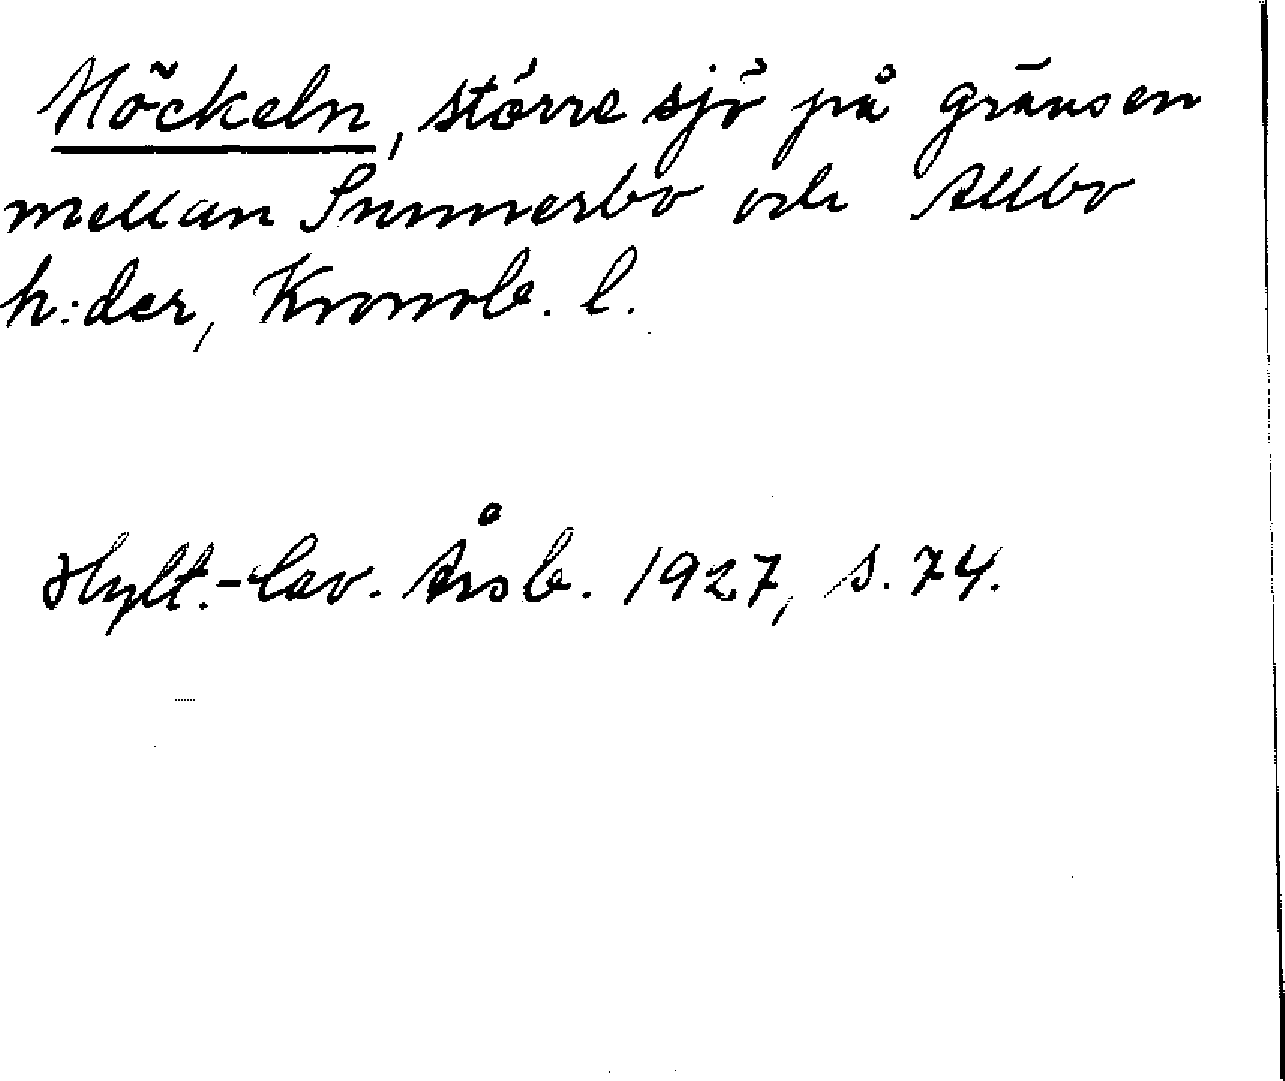 Möckeln, större sjö på gränsen
mellan Sunnerbo och Allbo
h:der, Kronob. l.
Hylt.-Cav. Årsb. 1927, s. 74.